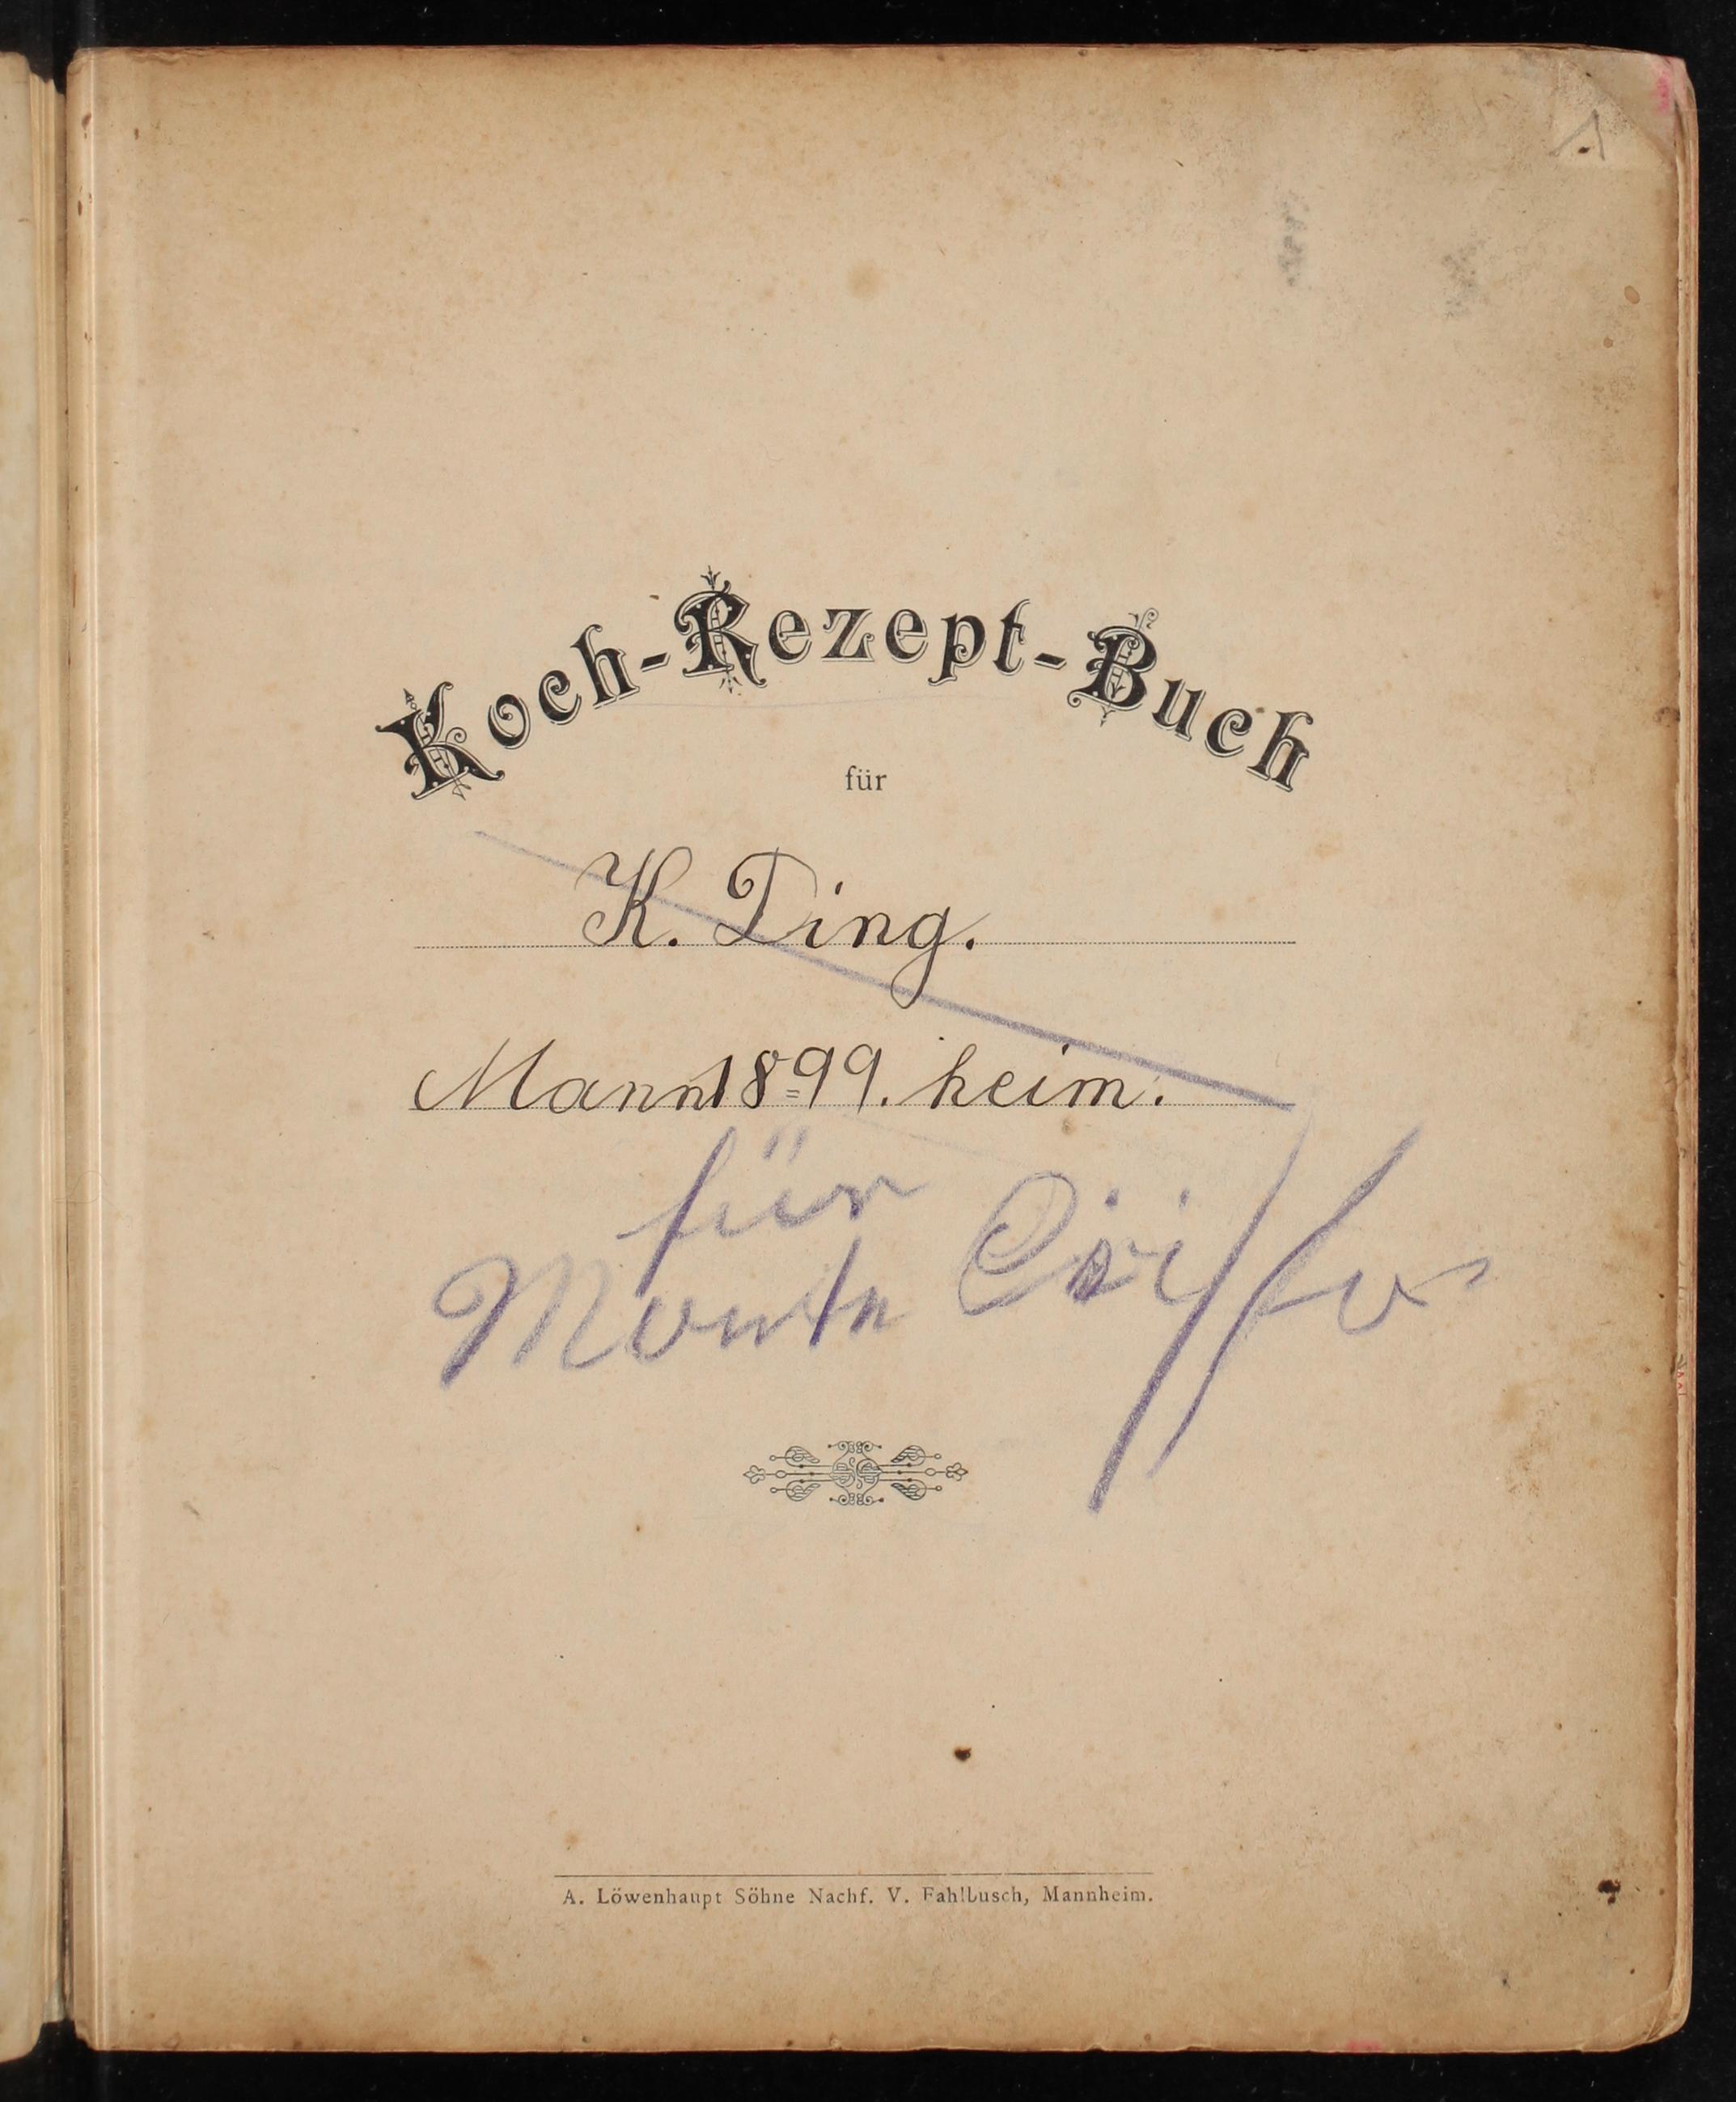 1
Koch-Rezept-Buch
für
K. Ding.
Mann1899.heim.
für
Monte Cristo
A. Löwenhaupt Söhne Nachf. V. Fahlbusch, Mannheim.